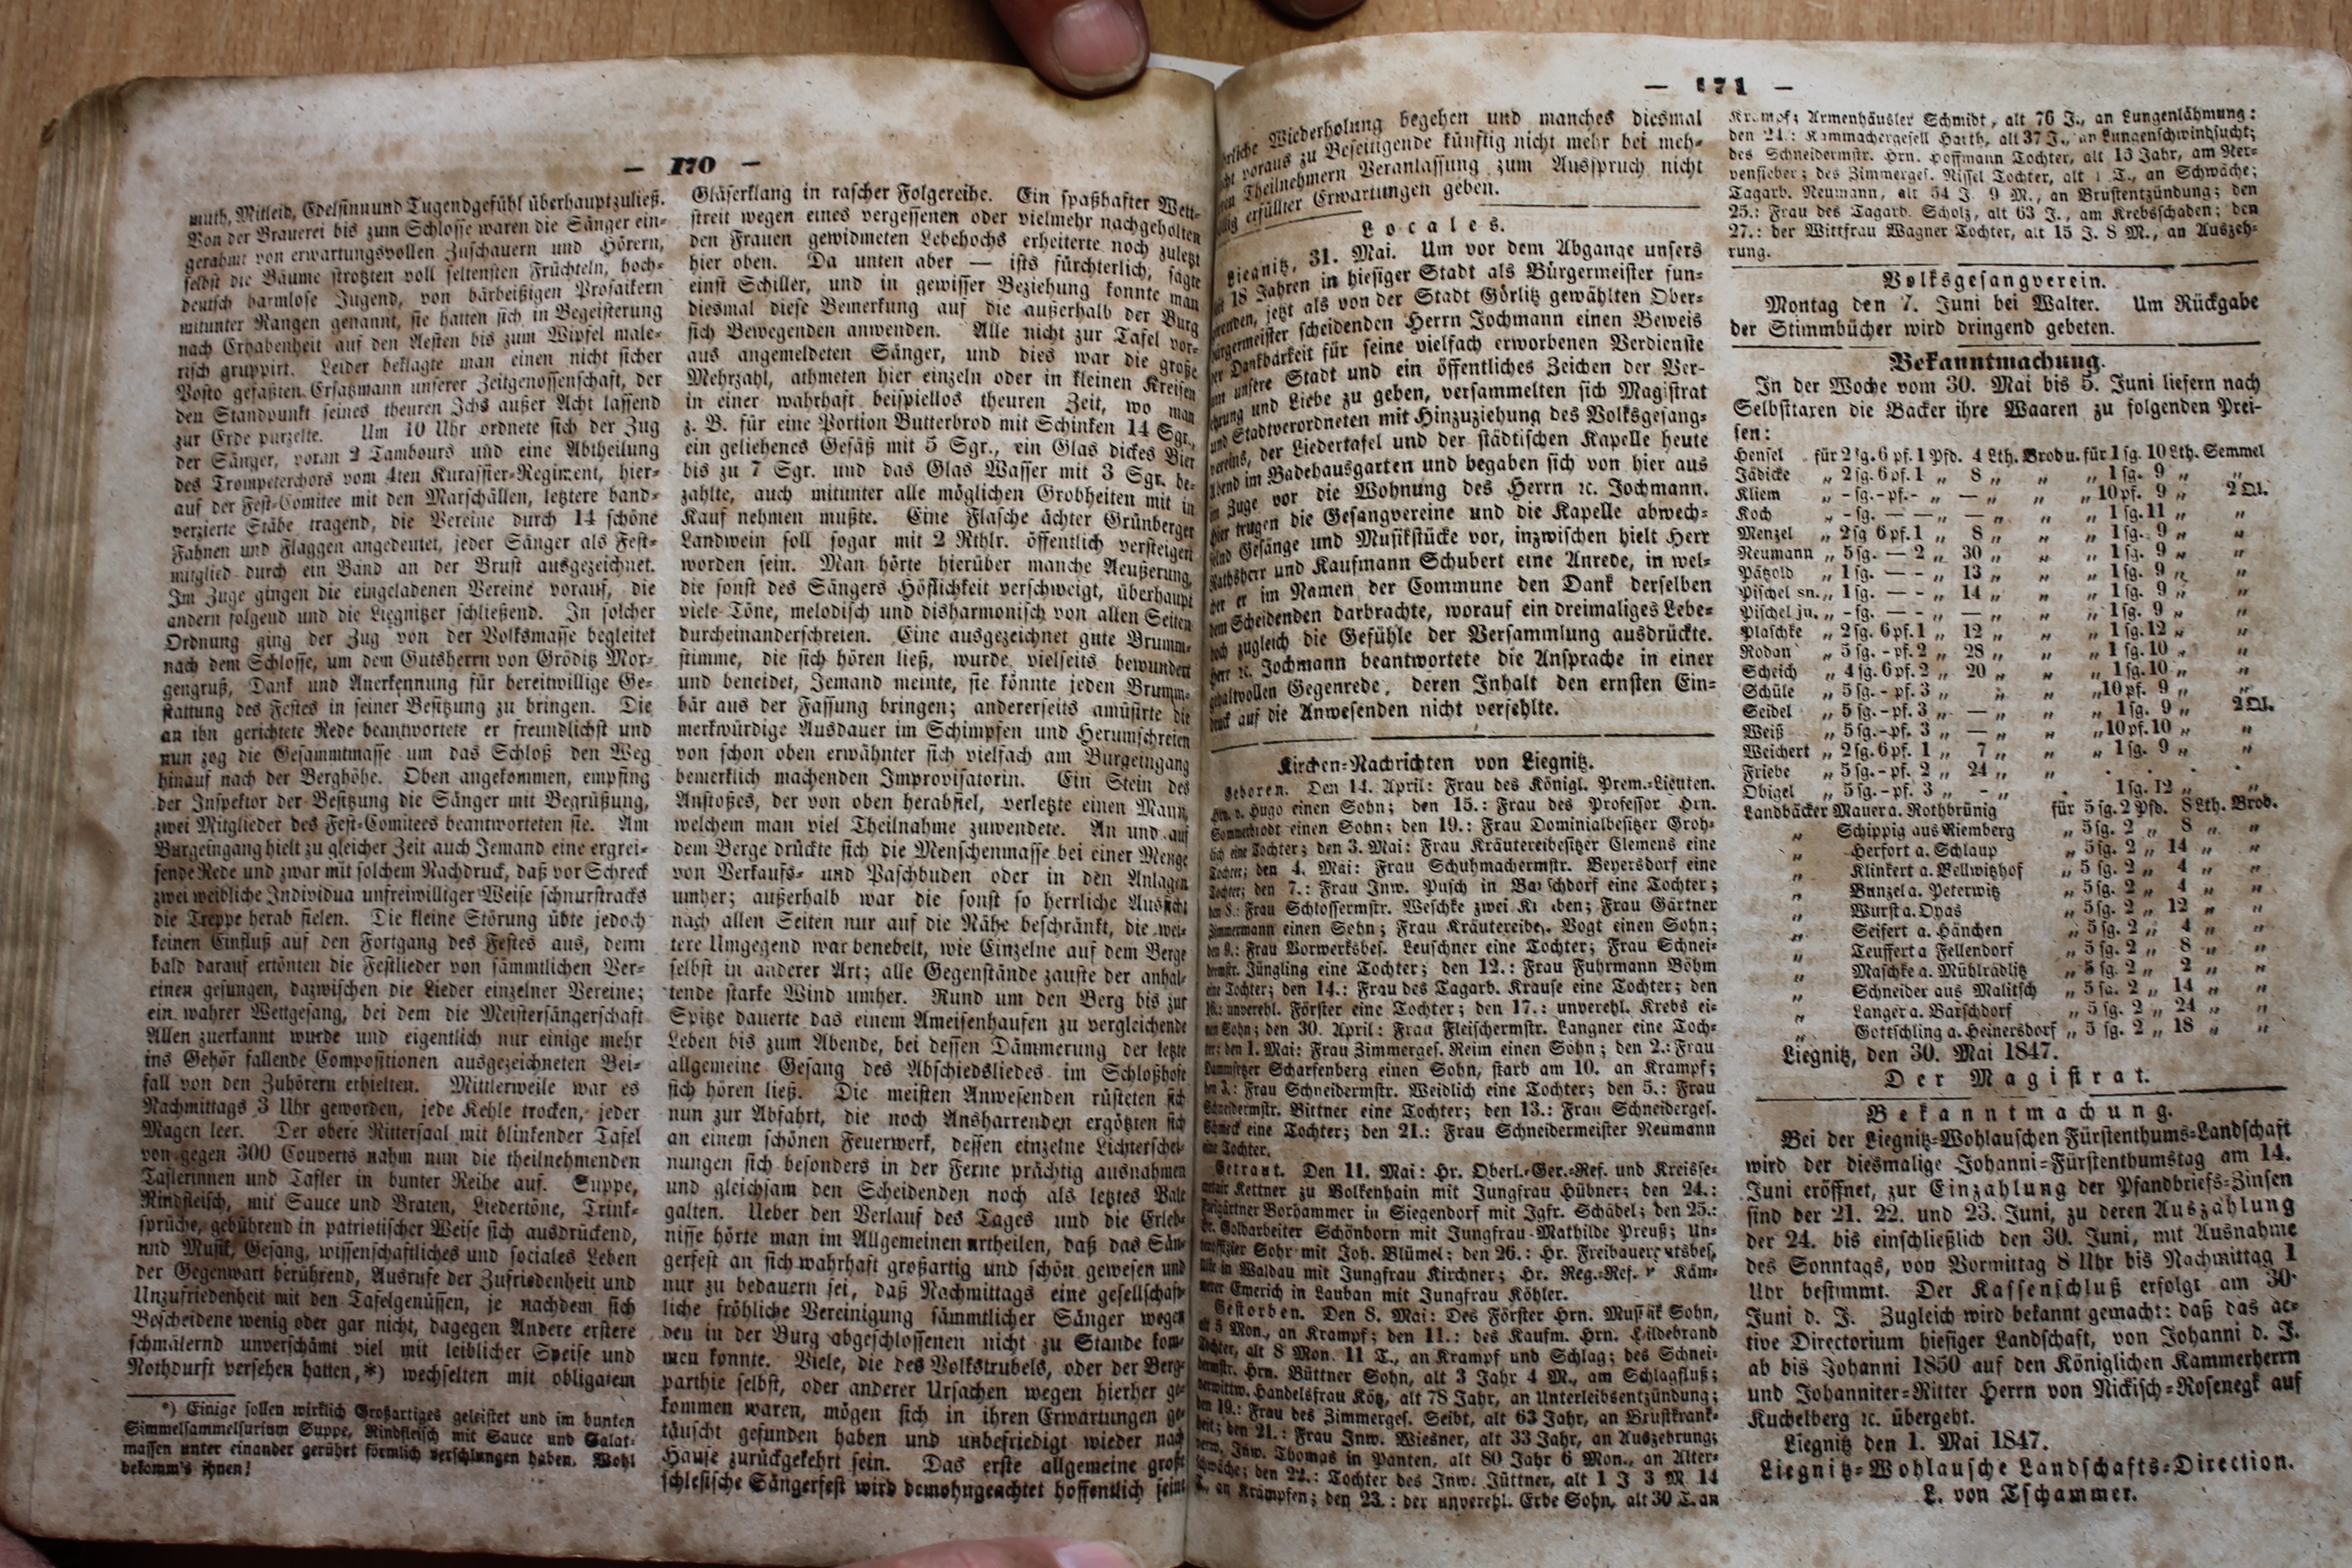 — 170 —
muth, Mitleid, Edelsinn und Tugendgefühl überhaupt zuließ.
Von der Brauerei bis zum Schlosse waren die Sänger ein-
gerahmt von erwartungsvollen Zuschauern und Hörern,
selbst die Bäume strotzten voll seltensten Früchteln, hoch-
deutsch harmlose Jugend, von bärbeißigen Prosaikern
mitunter Rangen genannt, sie hatten sich in Begeisterung
nach Erhabenheit auf den Aesten bis zum Wipfel male-
risch gruppirt. Leider beklagte man einen nicht sicher
Posto gefaßten Ersatzmann unserer Zeitgenossenschaft, der
den Standpunkt seines theuren Ichs außer Acht lassend
zur Erde purzelte. Um 10 Uhr ordnete sich der Zug
der Sänger, voran 2 Tambours und eine Abtheilung
des Trompeterchors vom 4ten Kurassier-Regiment, hier-
auf der Fest-Comitee mit den Marschällen, letztere band-
verzierte Stäbe tragend, die Vereine durch 14 schöne
Fahnen und Flaggen angedeutet, jeder Sänger als Fest-
mitglied durch ein Band an der Brust ausgezeichnet.
Im Zuge gingen die eingeladenen Vereine vorauf, die
andern folgend und die Liegnitzer schließend. In solcher
Ordnung ging der Zug von der Volksmasse begleitet
nach dem Schlosse, um dem Gutsherrn von Gröditz Mor-
gengruß, Dank und Anerkennung für bereitwillige Ge-
stattung des Festes in seiner Besitzung zu bringen. Die
an ihn gerichtete Rede beantwortete er freundlichst und
nun zog die Gesammtmasse um das Schloß den Weg
hinauf nach der Berghöhe. Oben angekommen, empfing
der Inspektor der Besitzung die Sänger mit Begrüßung,
zwei Mitglieder des Fest-Comitees beantworteten sie. Am
Burgeingang hielt zu gleicher Zeit auch Jemand eine ergrei-
fende Rede und zwar mit solchem Nachdruck, daß vor Schreck
zwei weibliche Individua unfreiwilliger Weise schnurstracks
die Treppe herab fielen. Die kleine Störung übte jedoch
keinen Einfluß auf den Fortgang des Festes aus, denn
bald darauf ertönten die Festlieder von sämmtlichen Ver-
einen gesungen, dazwischen die Lieder einzelner Vereine;
ein wahrer Wettgesang, bei dem die Meistersängerschaft
Allen zuerkannt wurde und eigentlich nur einige mehr
ins Gehör fallende Compositionen ausgezeichneten Bei-
fall von den Zuhörern erhielten. Mittlerweile war es
Nachmittags 3 Uhr geworden, jede Kehle trocken, jeder
Magen leer. Der obere Rittersaal mit blinkender Tafel
von gegen 300 Couverts nahm nun die theilnehmenden
Taflerinnen und Tafler in bunter Reihe auf. Suppe,
Rindfleisch, mit Sauce und Braten, Liedertöne, Trink-
sprüche, gebührend in patriotischer Weise sich ausdrückend,
und Musik, Gesang, wissenschaftliches und sociales Leben
der Gegenwart berührend, Ausrufe der Zufriedenheit und
Unzufriedenheit mit den Tafelgenüssen, je nachdem sich
Bescheidene wenig oder gar nicht, dagegen Andere erstere
schmälernd unverschämt viel mit leiblicher Speise und
Nothdurft versehen hatten,*) wechselten mit obligatem
*) Einige sollen wirklich Großartiges geleistet und im bunten
Simmelsammelsurium Suppe, Rindfleisch mit Sauce und Salat-
massen unter einander gerührt förmlich verschlungen haben. Wohl
bekomm's ihnen!
Gläserklang in rascher Folgereihe. Ein spaßhafter Wett-
streit wegen eines vergessenen oder vielmehr nachgeholten
den Frauen gewidmeten Lebehochs erheiterte noch zuletzt
hier oben. Da unten aber — ists fürchterlich, sagte
einst Schiller, und in gewisser Beziehung konnte man
diesmal diese Bemerkung auf die außerhalb der Burg
sich Bewegenden anwenden. Alle nicht zur Tafel vor-
aus angemeldeten Sänger, und dies war die große
Mehrzahl, athmeten hier einzeln oder in kleinen Kreisen
in einer wahrhaft beispiellos theuren Zeit, wo man
z. B. für eine Portion Butterbrod mit Schinken 14 Sgr.,
ein geliehenes Gefäß mit 5 Sgr., ein Glas dickes Bier
bis zu 7 Sgr. und das Glas Wasser mit 3 Sgr. be-
zahlte, auch mitunter alle möglichen Grobheiten mit in
Kauf nehmen mußte. Eine Flasche ächter Grünberger
Landwein soll sogar mit 2 Rthlr. öffentlich versteigert
worden sein. Man hörte hierüber manche Aeußerung,
die sonst des Sängers Höflichkeit verschweigt, überhaupt
viele Töne, melodisch und disharmonisch von allen Seiten
durcheinanderschreien. Eine ausgezeichnet gute Brumm-
stimme, die sich hören ließ, wurde vielseits bewundert
und beneidet, Jemand meinte, sie könnte jeden Brumm-
bär aus der Fassung bringen; andererseits amüsirte die
merkwürdige Ausdauer im Schimpfen und Herumschreien
von schon oben erwähnter sich vielfach am Burgeingang
bemerklich machenden Improvisatorin. Ein Stein des
Anstoßes, der von oben herabfiel, verletzte einen Mann,
welchem man viel Theilnahme zuwendete. An und auf
dem Berge drückte sich die Menschenmasse bei einer Menge
von Verkaufs- und Paschbuden oder in den Anlagen
umher; außerhalb war die sonst so herrliche Aussicht
nach allen Seiten nur auf die Nähe beschränkt, die wei-
tere Umgegend war benebelt, wie Einzelne auf dem Berge
selbst in anderer Art; alle Gegenstände zauste der anhal-
tende starke Wind umher. Rund um den Berg bis zur
Spitze dauerte das einem Ameisenhaufen zu vergleichende
Leben bis zum Abende, bei dessen Dämmerung der letzte
allgemeine Gesang des Abschiedsliedes im Schloßhofe
sich hören ließ. Die meisten Anwesenden rüsteten sich
nun zur Abfahrt, die noch Ansharrenden ergötzten sich
an einem schönen Feuerwerk, dessen einzelne Lichterschei-
nungen sich besonders in der Ferne prächtig ausnahmen
und gleichsam den Scheidenden noch als letztes Vale
galten. Ueber den Verlauf des Tages und die Erleb-
nisse hörte man im Allgemeinen urtheilen, daß das Sän-
gerfest an sich wahrhaft großartig und schön gewesen und
nur zu bedauern sei, daß Nachmittags eine gesellschaft-
liche fröhliche Vereinigung sämmtlicher Sänger wegen
den in der Burg abgeschlossenen nicht zu Stande kom-
men konnte. Viele, die des Volkstrubels, oder der Berg-
parthie selbst, oder anderer Ursachen wegen hierher ge-
kommen waren, mögen sich in ihren Erwartungen ge-
täuscht gefunden haben und unbefriedigt wieder nach
Hause zurückgekehrt sein. Das erste allgemeine große
schlesische Sängerfest wird demohngeachtet hoffentlich seine
— 171 —
Wiederholung begehen und manches diesmal
voraus zu Beseitigende künftig nicht mehr bei meh-
Theilnehmern Veranlassung zum Ausspruch nicht
erfüllter Erwartungen geben.
Locales.
Liegnitz, 31. Mai. Um vor dem Abgange unsers
seit 18 Jahren in hiesiger Stadt als Bürgermeister fun-
jetzt als von der Stadt Görlitz gewählten Ober-
bürgermeister scheidenden Herrn Jochmann einen Beweis
der Dankbarkeit für seine vielfach erworbenen Verdienste
um unsere Stadt und ein öffentliches Zeichen der Ver-
ehrung und Liebe zu geben, versammelten sich Magistrat
und Stadtverordneten mit Hinzuziehung des Volksgesang-
vereins, der Liedertafel und der städtischen Kapelle heute
Abend im Badehausgarten und begaben sich von hier aus
im Zuge vor die Wohnung des Herrn ꝛc. Jochmann.
Hier trugen die Gesangvereine und die Kapelle abwech-
selnd Gesänge und Musikstücke vor, inzwischen hielt Herr
Rathsherr und Kaufmann Schubert eine Anrede, in wel-
cher er im Namen der Commune den Dank derselben
dem Scheidenden darbrachte, worauf ein dreimaliges Lebe-
hoch zugleich die Gefühle der Versammlung ausdrückte.
Herr ꝛc. Jochmann beantwortete die Ansprache in einer
gehaltvollen Gegenrede, deren Inhalt den ernsten Ein-
druck auf die Anwesenden nicht verfehlte.
Kirchen-Nachrichten von Liegnitz.
Geboren. Den 14. April: Frau des Königl. Prem.-Lieuten.
Hrn. v. Hugo einen Sohn; den 15.: Frau des Professor Hrn.
Sommerbrodt einen Sohn; den 19.: Frau Dominialbesitzer Groh-
lich eine Tochter; den 3. Mai: Frau Kräutereibesitzer Clemens eine
Tochter; den 4. Mai: Frau Schuhmachermstr. Beyersdorf eine
Tochter; den 7.: Frau Inw. Pusch in Barschdorf eine Tochter;
den 8.: Frau Schlossermstr. Weschke zwei Knaben; Frau Gärtner
Zimmermann einen Sohn; Frau Kräutereibes. Vogt einen Sohn;
den 9.: Frau Vorwerksbes. Leuschner eine Tochter; Frau Schnei-
dermstr. Jüngling eine Tochter; den 12.: Frau Fuhrmann Böhm
eine Tochter; den 14.: Frau des Tagarb. Krause eine Tochter; den
unverehl. Förster eine Tochter; den 17.: unverehl. Krebs ei-
nen Sohn; den 30. April: Frau Fleischermstr. Langner eine Toch-
ter; den 1. Mai: Frau Zimmerges. Reim einen Sohn; den 2.: Frau
Scharfenberg einen Sohn, starb am 10. an Krampf;
den 3.: Frau Schneidermstr. Weidlich eine Tochter; den 5.: Frau
Schneidermstr. Bittner eine Tochter; den 13.: Frau Schneiderges.
eine Tochter; den 21.: Frau Schneidermeister Neumann
eine Tochter.
Getraut. Den 11. Mai: Hr. Oberl.-Ger.-Ref. und Kreisse-
cretair Kettner zu Bolkenhain mit Jungfrau Hübner; den 24.:
Freigärtner Borhammer in Siegendorf mit Jgfr. Schädel; den 25.:
Hr. Goldarbeiter Schönborn mit Jungfrau Mathilde Preuß; Un-
teroffizier Sohr mit Joh. Blümel; den 26.: Hr. Freibauergutsbes.
in Waldau mit Jungfrau Kirchner; Hr. Reg.-Ref. Käm-
merer Emerich in Lauban mit Jungfrau Köhler.
Gestorben. Den 8. Mai: Des Förster Hrn. Sohn,
alt 5 Mon., an Krampf; den 11.: des Kaufm. Hrn. Hildebrand
Tochter, alt 8 Mon. 11 T., an Krampf und Schlag; des Schnei-
dermstr. Hrn. Büttner Sohn, alt 3 Jahr 4 M., am Schlagfluß;
verwittw. Handelsfrau Kötz, alt 78 Jahr, an Unterleibsentzündung;
den 19.: Frau des Zimmerges. Seibt, alt 63 Jahr, an Brustkrank-
heit; den 21.: Frau Inw. Wiesner, alt 33 Jahr, an Auszehrung;
Inw. Thomas in Panten, alt 80 Jahr 6 Mon., an Alter-
schwäche; den 22.: Tochter des Inw. Jüttner, alt 1 J 3 M 14
T., an Krämpfen; den 23.: der unverehl. Erbe Sohn, alt 30 T. an
Krampf; Armenhäusler Schmidt, alt 76 J., an Lungenlähmung;
den 24.: Kammachergesell Harth, alt 37 J., an Lungenschwindsucht;
des Schneidermstr. Hrn. Hoffmann Tochter, alt 13 Jahr, am Ner-
venfieber; des Zimmerges. Nissel Tochter, alt 1 T., an Schwäche;
Tagarb. Neumann, alt 54 J. 9 M., an Brustentzündung; den
25.: Frau des Tagarb. Scholz, alt 63 J., am Krebsschaden; den
27.: der Wittfrau Wagner Tochter, alt 15 J. 8 M., an Auszeh-
rung.
Volksgesangverein.
Montag den 7. Juni bei Walter. Um Rückgabe
der Stimmbücher wird dringend gebeten.
Bekanntmachung.
In der Woche vom 30. Mai bis 5. Juni liefern nach
Selbsttaxen die Bäcker ihre Waaren zu folgenden Prei-
sen:
Hensel für 2 sg. 6 pf. 1 Pfd. 4 Lth. Brod u. für 1 sg. 10 Lth. Semmel
Jädicke „ 2 sg. 6 pf. 1 „ 8 „ „ „ 1 sg. 9 „ „
Kliem „ - sg. - pf. - „ — „ „ „ 10 pf. 9 „ 2 Ql.
Koch „ - sg. — — „ — „ „ „ 1 sg. 11 „ „
Menzel „ 2 sg 6 pf. 1 „ 8 „ „ „ 1 sg. 9 „ „
Neumann „ 5 sg. — 2 „ 30 „ „ „ 1 sg. 9 „ „
Pätzold „ 1 sg. — - „ 13 „ „ „ 1 sg. 9 „ „
Pischel sn. „ 1 sg. — - „ 14 „ „ „ 1 sg. 9 „ „
Pischel ju. „ - sg. — - „ — „ „ „ 1 sg. 9 „ „
Plaschke „ 2 sg. 6 pf. 1 „ 12 „ „ „ 1 sg. 12 „ „
Rodan „ 5 sg. - pf. 2 „ 28 „ „ „ 1 sg. 10 „ „
Scheich „ 4 sg. 6 pf. 2 „ 20 „ „ „ 1 sg. 10 „ „
Schüle „ 5 sg. - pf. 3 „ „ „ „ 10 pf. 9 „ „
Seidel „ 5 sg. - pf. 3 „ — „ „ „ 1 sg. 9 „ 2 Ql.
Weiß „ 5 sg. - pf. 3 „ — „ „ „ 10 pf. 10 „ „
Weichert „ 2 sg. 6 pf. 1 „ 7 „ „ „ 1 sg. 9 „ „
Friebe „ 5 sg. - pf. 2 „ 24 „ „ . . . .
Obigel „ 5 sg. - pf. 3 „ - „ . 1 sg. 12 „ „
Landbäcker Mauer a. Rothbrünig für 5 sg. 2 Pfd. 8 Lth. Brod.
„ Schippig aus Niemberg „ 5 sg. 2 „ 8 „ „
„ Herfort a. Schlaup „ 5 sg. 2 „ 14 „ „
„ Klinkert a. Bellwitzhof „ 5 sg. 2 „ 4 „ „
„ Bunzel a. Peterwitz „ 5 sg. 2 „ 4 „ „
„ Wurst a. Oyas „ 5 sg. 2 „ 12 „ „
„ Seifert a. Hänchen „ 5 sg. 2 „ 4 „ „
„ Teuffert a Fellendorf „ 5 sg. 2 „ 8 „ „
„ Maschke a. Mühlrädlitz „ 5 sg. 2 „ 2 „ „
„ Schneider aus Malitsch „ 5 sg. 2 „ 14 „ „
„ Langer a. Barschdorf „ 5 sg. 2 „ 24 „ „
„ Gottschling a. Heinersdorf „ 5 sg. 2 „ 18 „ „
Liegnitz, den 30. Mai 1847.
Der Magistrat.
Bekanntmachung.
Bei der Liegnitz-Wohlauschen Fürstenthums-Landschaft
wird der diesmalige Johanni-Fürstenthumstag am 14.
Juni eröffnet, zur Einzahlung der Pfandbriefs-Zinsen
sind der 21. 22. und 23. Juni, zu deren Auszahlung
der 24. bis einschließlich den 30. Juni, mit Ausnahme
des Sonntags, von Vormittag 8 Uhr bis Nachmittag 1
Uhr bestimmt. Der Kassenschluß erfolgt am 30.
Juni d. J. Zugleich wird bekannt gemacht: daß das ac-
tive Directorium hiesiger Landschaft, von Johanni d. J.
ab bis Johanni 1850 auf den Königlichen Kammerherrn
und Johanniter-Ritter Herrn von Nickisch-Rosenegk auf
Kuchelberg ꝛc. übergeht.
Liegnitz den 1. Mai 1847.
Liegnitz-Wohlausche Landschafts-Direction.
L. von Tschammer.